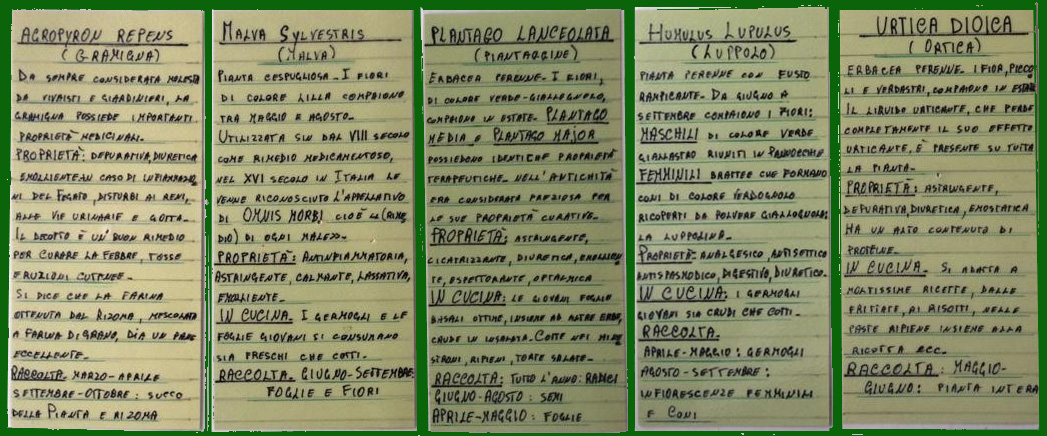 AGROPYRON REPENS
(GRAMIGNA)
DA SEMPRE CONSIDERATA MOLESTA
DA VIVAISTI E GIARDINIERI, LA
GRAMIGNA POSSIEDE IMPORTANTI
PROPRIETÀ MEDICINALI.
PROPRIETÀ: DEPURATIVA, DIURETICA
EMOLLIENTE. IN CASO DI INFIAMMAZIO,
NI DEL FEGATO, DISTURBI AI RENI,
ALLE VIE URINARIE E GOTTA.
IL DECOTTO È UN'BUON RIMEDIO
PER CURARE LA FEBBRE, TOSSE
ERUZIONI CUTANEE.
SI DICE CHE LA FARINA
OTTENUTA DAL RIZOMA, MESCOLATA
A FARINA DI GRANO, DIA UN PANE
ECCELLENTE.
RACCOLTA. MARZO-APRILE
SETTEMBRE-OTTOBRE: SUCCO
DELLA PIANTA E RIZOMA
MALVA SYLVESTRIS
(MALVA)
PIANTA CESPUGLIOSA. I FIORI
DI COLORE LILLA COMPAIONO
TRA MAGGIO E AGOSTO.
UTILIZZATA SIN DAL VIII SECOLO
COME RIMEDIO MEDICAMENTOSO,
NEL XVI SECOLO IN ITALIA LE
VENNE RICONOSCIUTO L'APPELLATIVO
DI OMNIS MORBI CIOÈ LL (RIME
DIO) DI OGNI MALE>>.
PROPRIETÀ: ANTINFIAMMATORIA,
ASTRINGENTE, CALMANTE, LASSATIVA,
EMOLLIENTE.
IN CUCINA: I GERMOGLI E LE
FOGLIE GIOVANI SI CONSUMANO
SIA FRESCHI CHE COTTI.
RACCOLTA. GIUGNO-SETTEMBRE:
FOGLIE E FIORI
PLANTAGO LANCEOLATA
(PIANTAGGINE)
ERBACEA PERENNE. I FIORI,
DI COLORE VERDE-GIALLOGNOLO,
COMPAIONO IN ESTATE. PLANTAGO
MEDIA E PLANTAGO MAJOR
POSSIEDONO IDENTICHE PROPRIETÀ
TERAPEUTICHE. NELL'ANTICHITÀ
ERA CONSIDERATA PREZIOSA PER
LE SUE PROPRIETÀ CURATIVE.
PROPRIETÀ: ASTRINGENTE,
CICATRIZZANTE, DIURETICA, EMOLLIEN
TE, ESPETTORANTE, OFTALMICA
IN CUCINA: LE GIOVANI FOGLIE
BASALI OTTIME, INSIEME AD ALTRE ERBE,
CRUDE IN INSALATA. COTTE NEI MINE
STRONI, RIPIENI, TORTE SALATE.
RACCOLTA: TUTTO L'ANNO: RADICI
GIUGNO-AGOSTO: SEMI
APRILE-MAGGIO: FOGLIE
HUMULUS LUPULUS
(LUPPOLO)
PIANTA PERENNE CON FUSTO
RAMPICANTE. DA GIUGNO A
SETTEMBRE COMPAIONO I FIORI:
MASCHILI DI COLORE VERDE
GIALLASTRO RIUNITI IN PANNOCCHIE
FEMMINILI BRATTEE CHE FORMANO
CONI DI COLORE VERDOGNOLO
RICOPERTI DA POLVERE GIALLOGNOLA:
LA LUPPOLINA.
PROPRIETÀ: ANALGESICO, ANTISETTICO
ANTISPASMODICO, DIGESTIVO, DIURETICO.
IN CUCINA: I GERMOGLI
GIOVANI SIA CRUDI CHE COTTI.
RACCOLTA.
APRILE-MAGGIO: GERMOGLI
AGOSTO-SETTEMBRE:
INFIORESCENZE FEMMINILI
E CONI
URTICA DIOICA
(ORTICA)
ERBACEA PERENNE. I FIORI, PICCO
LI E VERDASTRI, COMPAIONO IN ESTATE
IL LIQUIDO URTICANTE, CHE PERDE
COMPLETAMENTE IL SUO EFFETTO
URTICANTE, È PRESENTE SU TUTTA
LA PIANTA.
PROPRIETÀ: ASTRINGENTE,
DEPURATIVA, DIURETICA, EMOSTATICA
HA UN ALTO CONTENUTO DI
PROTEINE.
IN CUCINA. SI ADATTA A
MOLTISSIME RICETTE, DALLE
FRITTATE, AI RISOTTI, NELLE
PASTE RIPIENE INSIEME ALLA
RICOTTA ECC.
RACCOLTA: MAGGIO-
GIUGNO: PIANTA INTERA